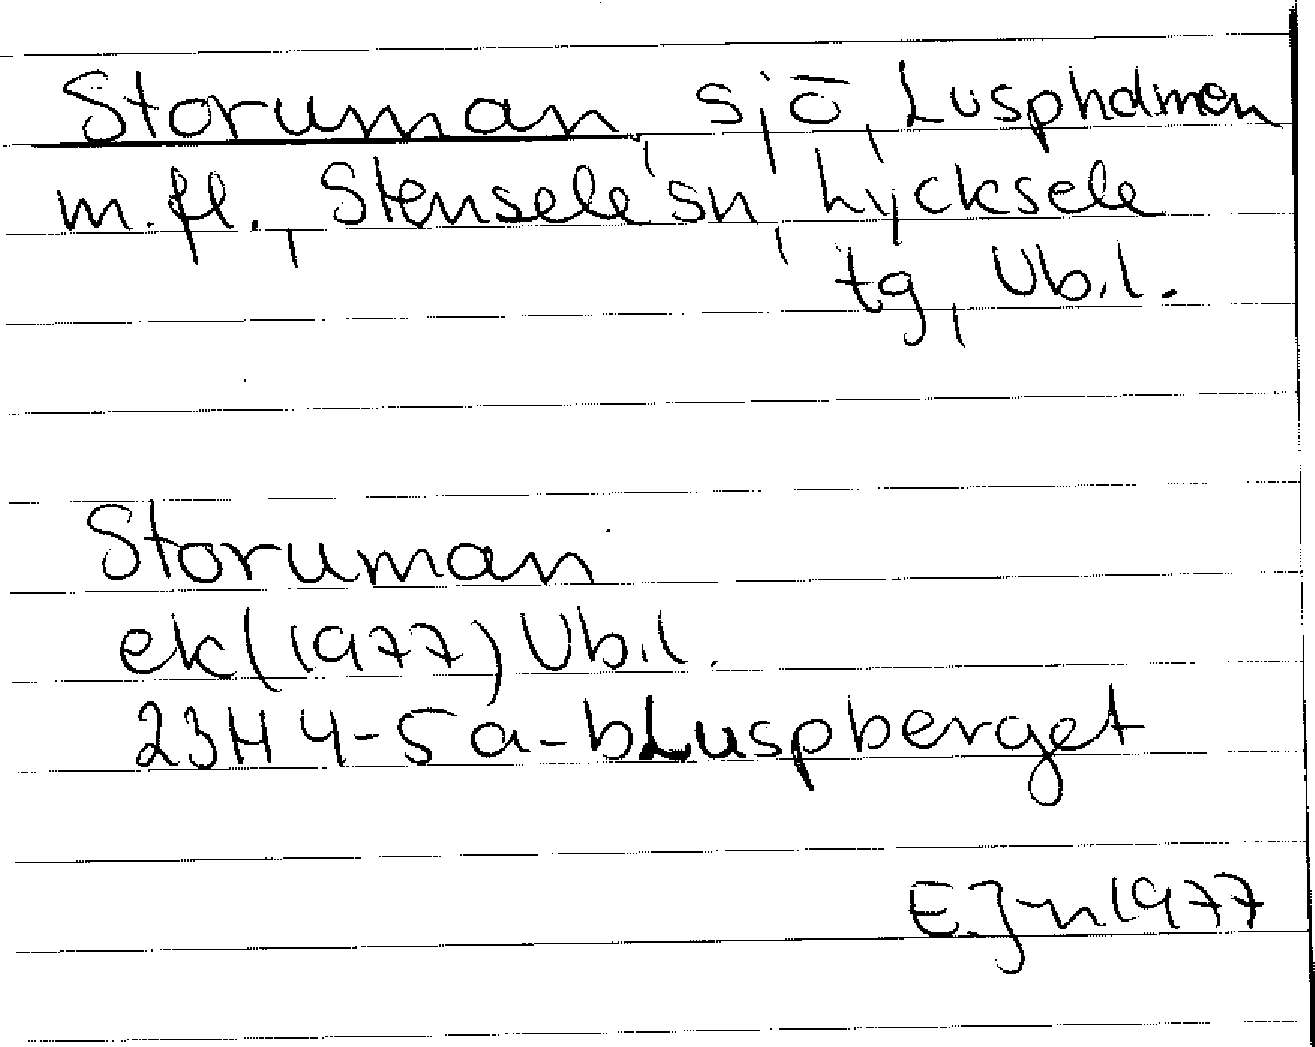 Storuman, sjö, Luspholmen
m.fl., Stensele sn, Lycksele
tg, Vb.l.
Storuman
ek (1977) Vb.l.
23H 4-5 a-b Luspberget
E.J-n 1977